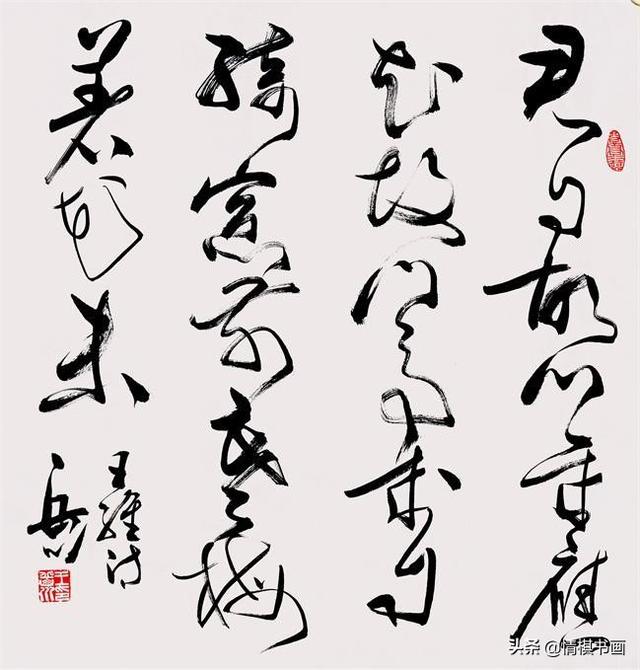 君自故乡来应
知故乡事来日
绮窗前寒梅
著花未
王维诗
头条 @情棋书画